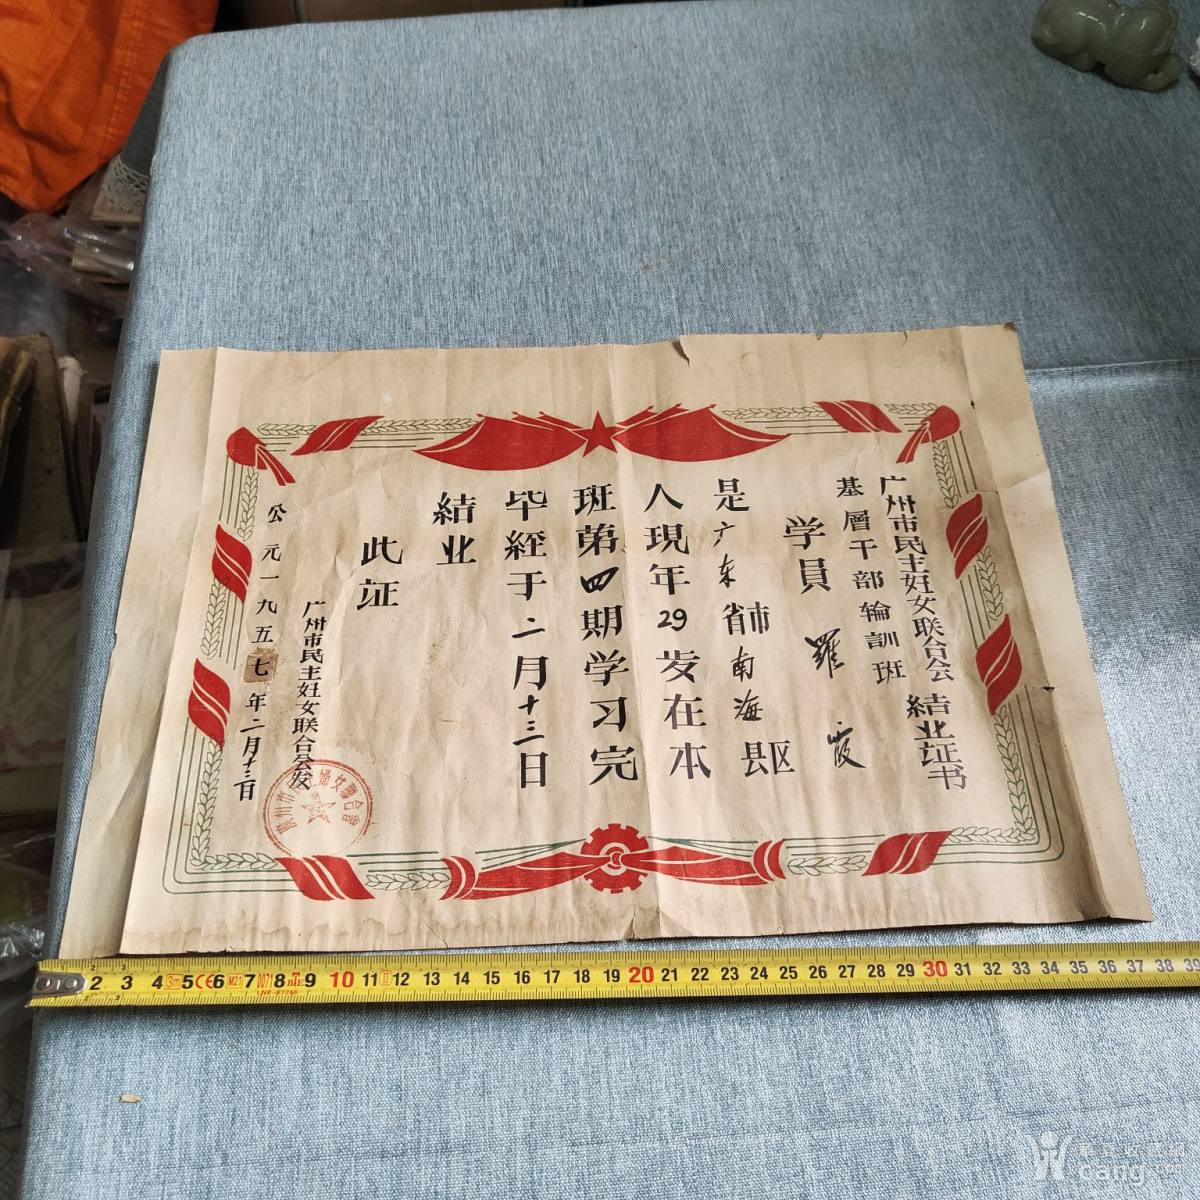 广州市民主妇女联合会
基層干部輪訓班
結业证书
学員 羅霞
是广东省市南海县区
人現年29岁在本
班第四期学习完
毕經于二月十三日
結业
此証
广州市民主妇女联合会发
公元一九五七年二月十三日
2 3 4 5 6 7 8 9 10 11 12 13 14 15 16 17 18 19 20 21 22 23 24 25 26 27 28 29 30 31 32 33 34 35 36 37 38 39
3m CE M21 0071
cang.com